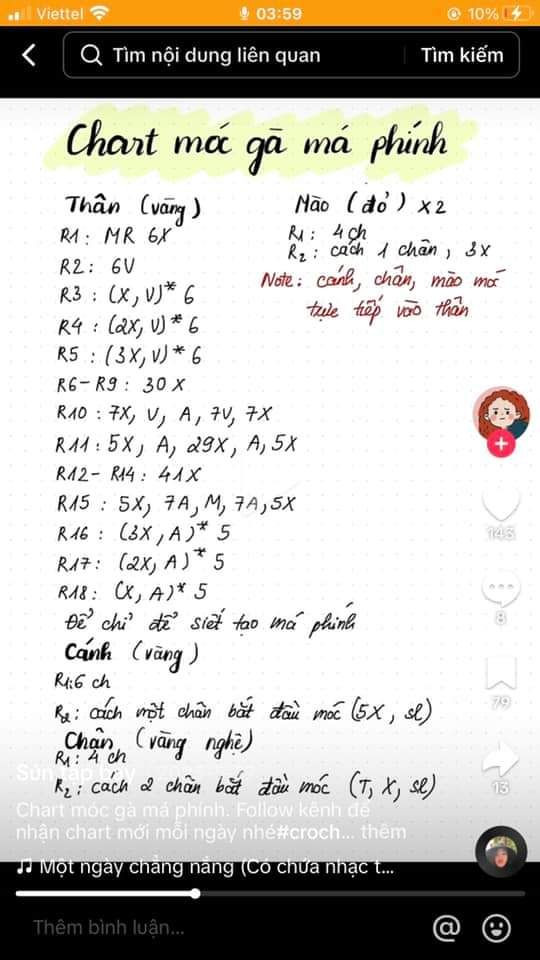 Viettel
03:59
10%
Tìm nội dung liên quan
Tìm kiếm
Chart móc gà má phính
Thân (vàng)
R1: MR 6X
R2: 6V
R3: (X, V)* 6
R4: (2X, V)* 6
R5: (3X, V)* 6
R6-R9: 30X
R10: 7X, V, A, 7V, 7X
R11: 5X, A, 29X, A, 5X
R12- R14: 41X
R15: 5X, 7A, M, 7A, 5X
R16: (3X, A)* 5
R17: (2X, A)* 5
R18: (X, A)* 5
Để chỉ để siết tạo má phính
Cánh (vàng)
R1: 6 ch
R2: cách một chân bắt đầu móc (5X, sl)
Chân (vàng nghệ)
R1: 4 ch
R2: cách 2 chân bắt đầu móc (T, X, sl)
Mào (đỏ) x2
R1: 4ch
R2: cách 1 chân, 3x
Note: cánh, chân, mào móc
trực tiếp vào thân
143
8
79
13
Chart móc gà má phính. Follow kênh để
nhận chart mới mỗi ngày nhé#croch... thêm
♫ Một ngày chẳng nắng (Có chứa nhạc t...
Thêm bình luận...